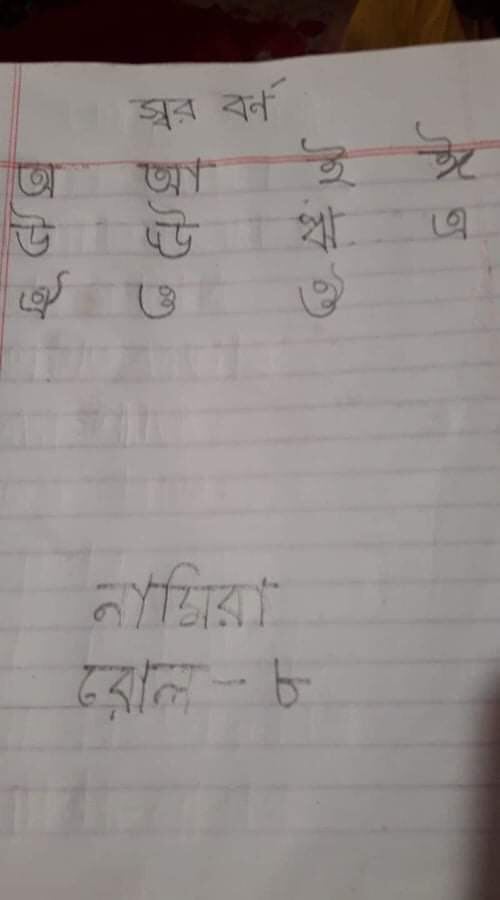 স্বর বর্ন
অ আ ই ঈ
উ ঊ ঋ এ
ঐ ও ঔ
নামিরা
রোল - ৮